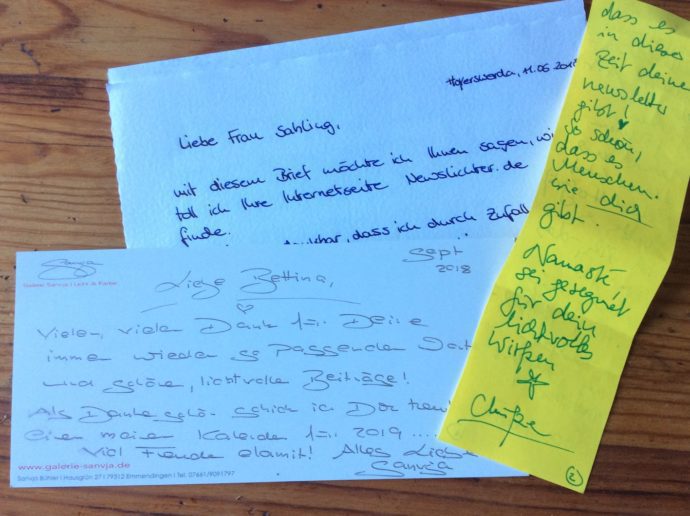 Hoyerswerda, 11.05.2018
Liebe Frau Sahling,
mit diesem Brief möchte ich Ihnen sagen, wie
toll ich Ihre Internetseite Newslichter.de
finde.
dass ich durch Zufall
dass es
in dieser
Zeit deine
newsletter
gibt!
So schön,
dass es
Menschen
wie dich
gibt.
Namasté
sei gesegnet
für dein
lichtvolles
Wirken
2
Sanvja
Galerie Sanvja I Licht & Farbe
Sept
2018
Liebe Bettina,
Vielen, vielen Dank für Deine
immer wieder so passenden
und schöne, lichtvolle Beiträge!
Als Dankeschön schick ich Dir heute
einen meiner Kalender für 2019....
Viel Freude damit! Alles Liebe
Sanvja
www.galerie-sanvja.de
Sanvja Bühler I Hausgrün 27 I 79312 Emmendingen I Tel. 07661/9091797